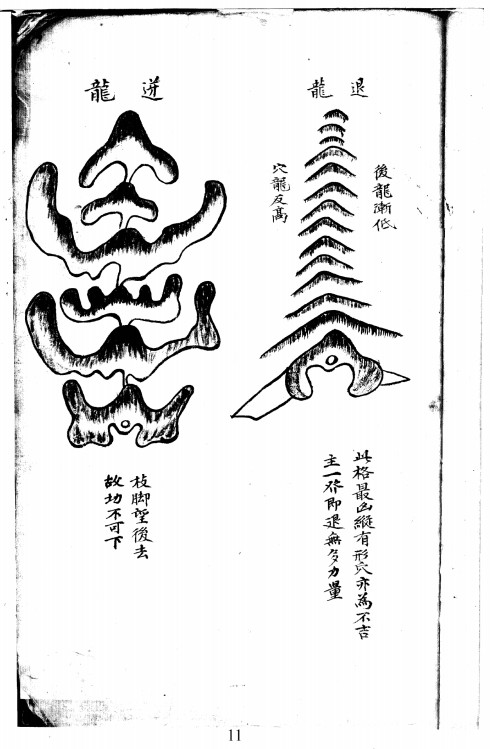 退龍
後龍漸低
穴龍反高
此格最凶縱有形穴亦為不吉
主一發即退無多力量
逆龍
枝脚望後去
故切不可下
11